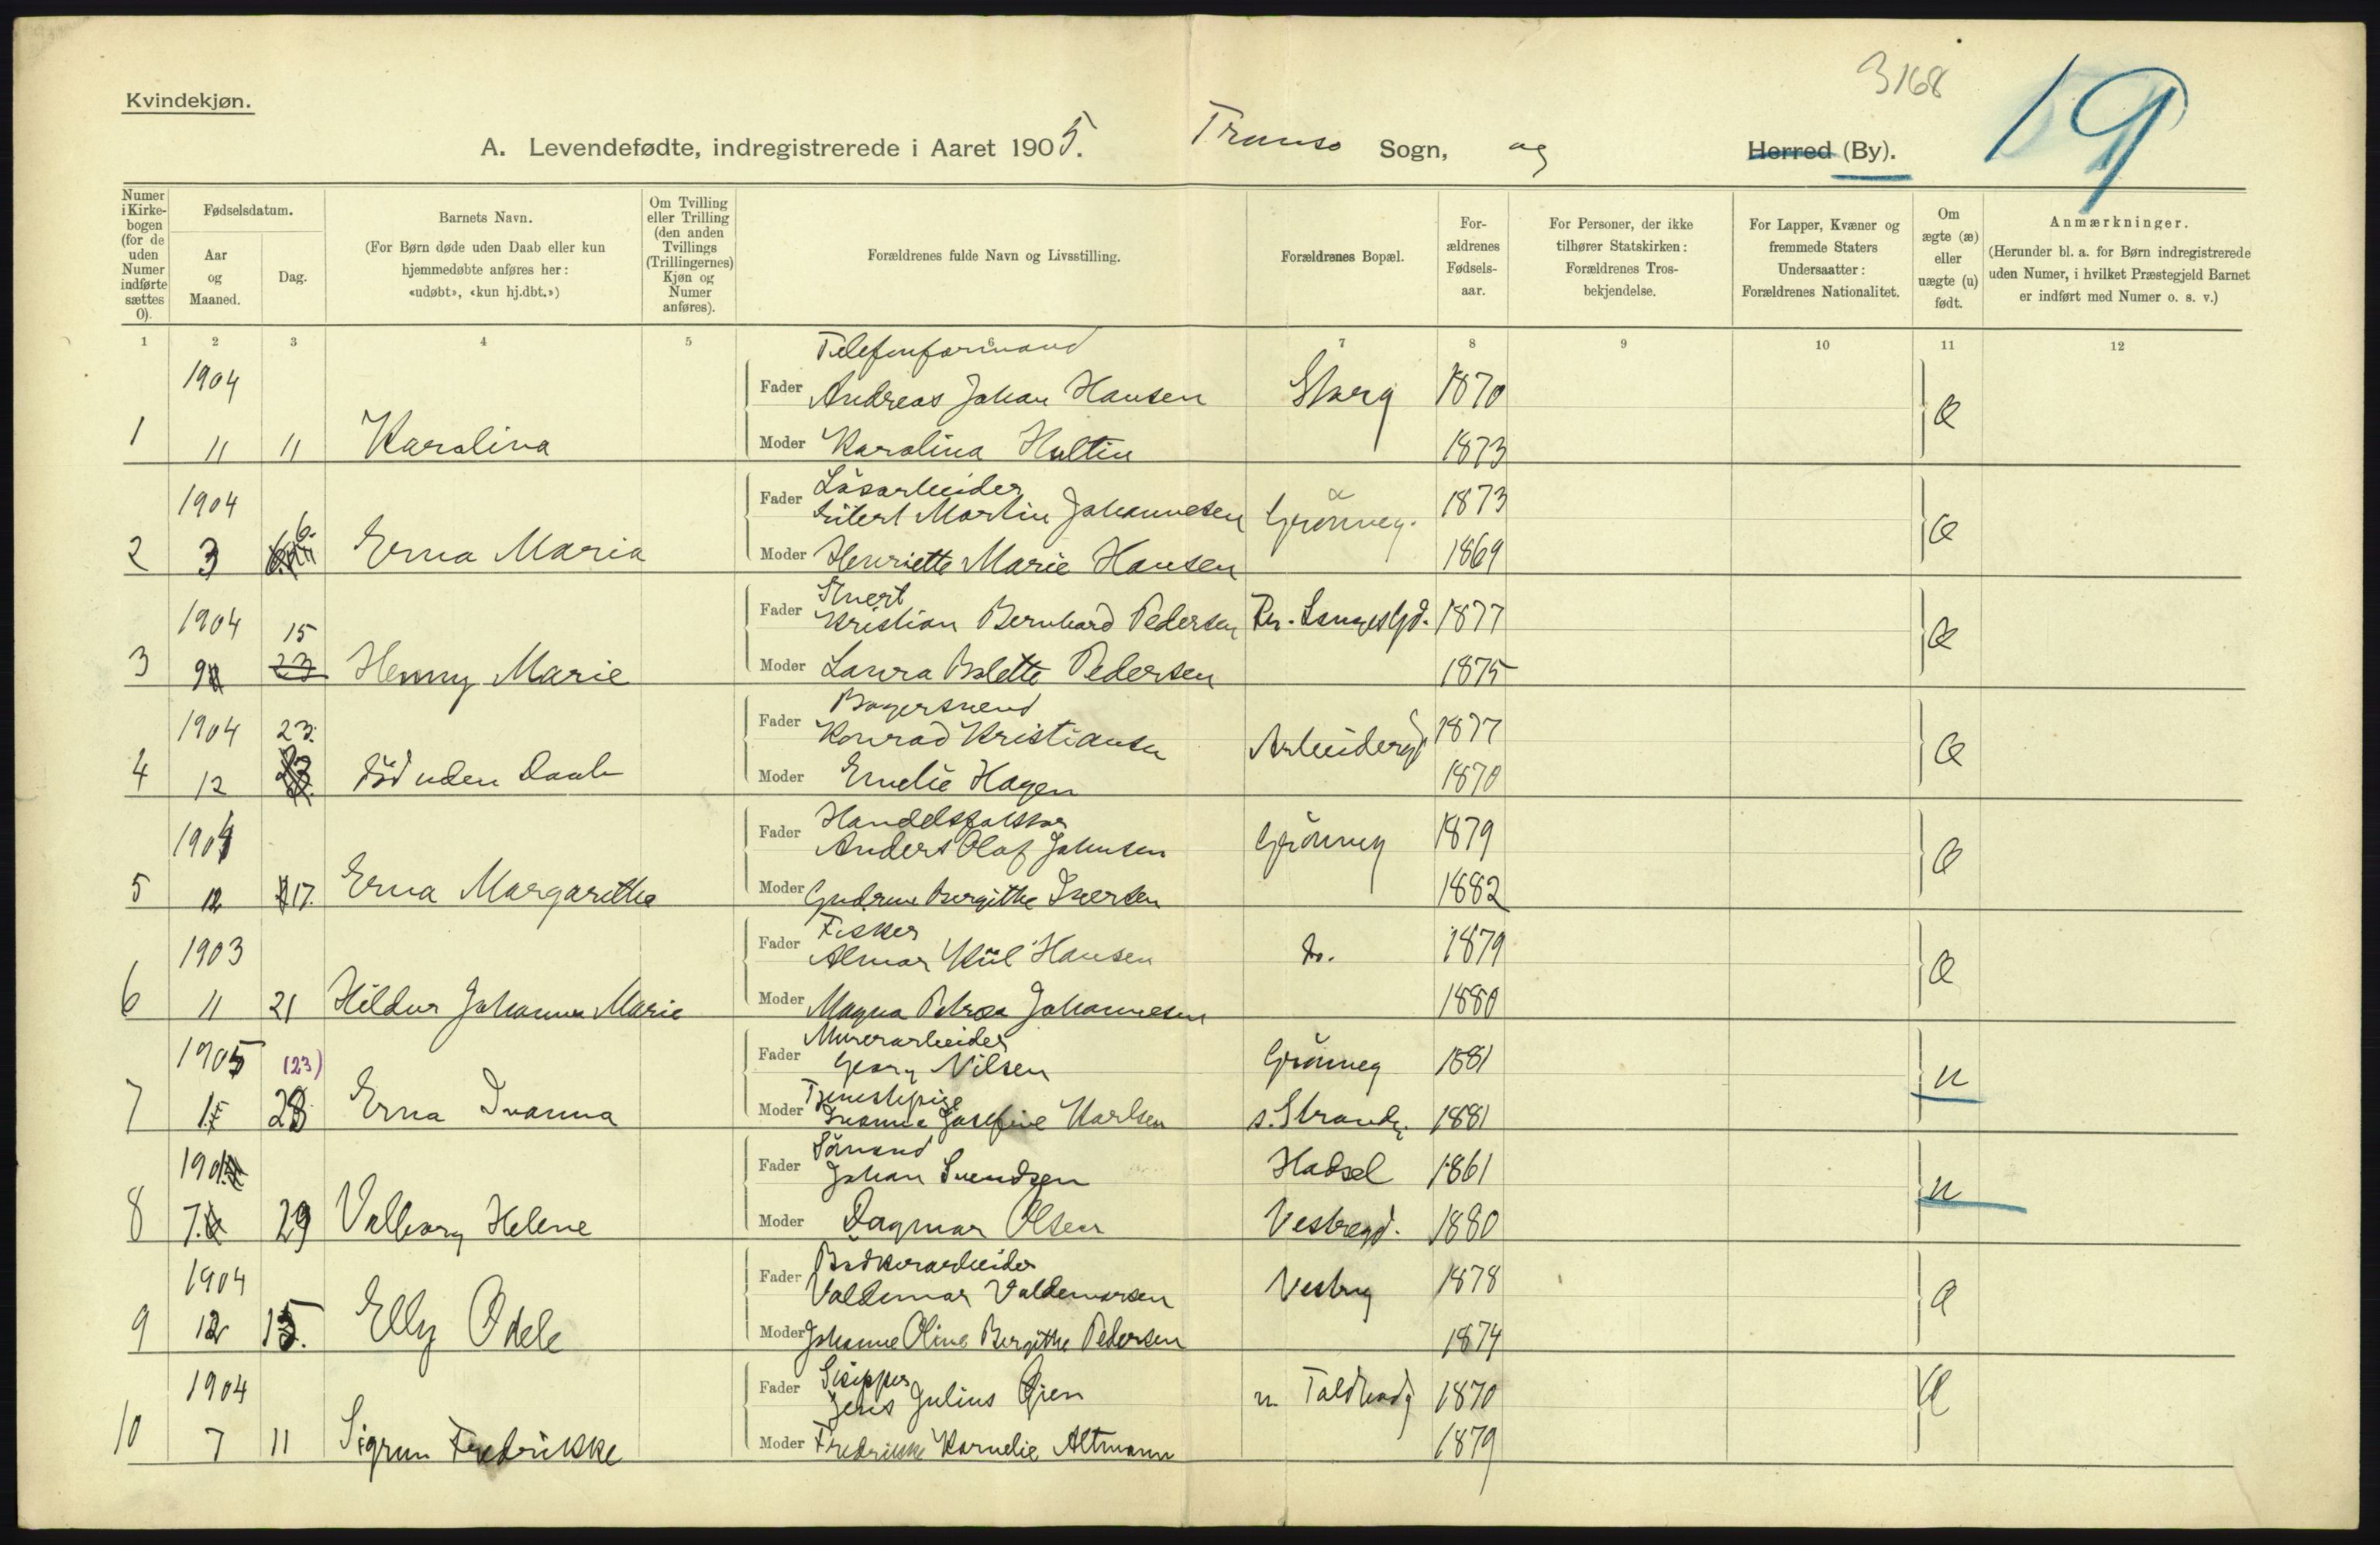 3168
19
Kvindekjøn.
A. Levendefødte, indregistrerede i Aaret 1905. Tromsø Sogn, og Herred (By).
Numer i Kirkebogen (for de uden Numer indførte sættes 0).
Fødselsdatum.
Aar og Maaned.
Dag.
Barnets Navn.
(For Børn døde uden Daab eller kun hjemmedøbte anføres her: «udøbt», «kun hj.dbt.»)
Om Tvilling eller Trilling (den anden Tvillings (Trillingernes) Kjøn og Numer anføres).
Forældrenes fulde Navn og Livsstilling.
Forældrenes Bopæl.
For-ældrenes Fødsels-aar.
For Personer, der ikke tilhører Statskirken: Forældrenes Tros-bekjendelse.
For Lapper, Kvæner og fremmede Staters Undersaatter: Forældrenes Nationalitet.
Om ægte (æ) eller uægte (u) født.
Anmærkninger.
(Herunder bl. a. for Børn indregistrerede uden Numer, i hvilket Præstegjeld Barnet er indført med Numer o. s. v.)
1 2 3 4 5 6 7 8 9 10 11 12
Telefonformand
1904 Fader Andreas Johan Hansen Storg 1870 Æ
1 11 11 Karolina Moder Karolina Hultin 1873
Løsarbeider
1904 Fader Eilert Martin Johannesen Grønneg. 1873 Æ
2 3 6. Erna Maria Moder Henriette Marie Hansen 1869
1904 15 Fader Kristian Bernhard Pedersen 1877 Æ
3 9 23 Henny Marie Moder Laura Bolette Pedersen 1875
Bagersvend
1904 23. Fader Konrad Kristiansen Arbeiderg 1877 Æ
4 12 Død uden Daab Moder Emelie Hagen 1870
Handelsfaktor
1904 Fader Anders Olaf Johnsen Grønneg 1879 Æ
5 12 17. Erna Margarethe Moder Gudrun Bergithe Iversen 1882
Fisker
1903 Fader Almar Kiil Hansen Do. 1879 Æ
6 11 21 Hildur Johanna Marie Moder Magna Petrea Johannesen 1880
Murerarbeider
1905 (23) Fader Georg Nilsen Grønneg 1881 u
Tjenestepige
7 1 28 Erna Ivanna Moder Ivanna Josefine Karlsen s. Strandg. 1881
Sømand
190 Fader Johan Svendsen Hadsel 1861 u
8 7. 29 Valborg Helene Moder Dagmar Olsen Vestregd. 1880
Bødkerarbeider
1904 Fader Valdemar Valdemarsen Vestreg 1878 Æ
9 12 15. Elly Odele Moder Johanne Oline Bergithe Pedersen 1874
Skipper
1904 Fader Jens Julius Øien n. Toldbodg 1870 Æ
10 7 11 Sigrun Fredrikke Moder Fredrikke Kornelie Altmann 1879